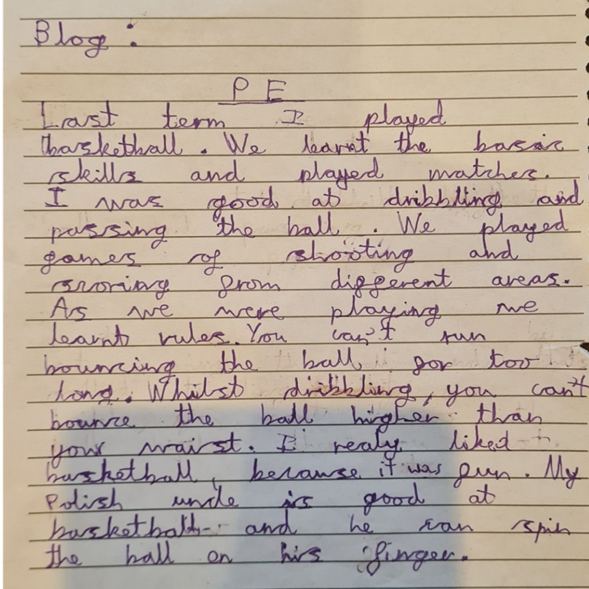 Blog :
PE
Last term I played
basketball. We learnt the basic
skills and played matches.
I was good at dribbling and
passing the ball. We played
games of shooting and
scoring from different areas.
As we were playing we
learnt rules. You can't run
bouncing the ball for too
long. Whilst dribbling, you can't
bounce the ball higher than
your waist. I realy liked
basketball, because it was fun. My
Polish uncle is good at
basketball and he can spin
the ball on his finger.